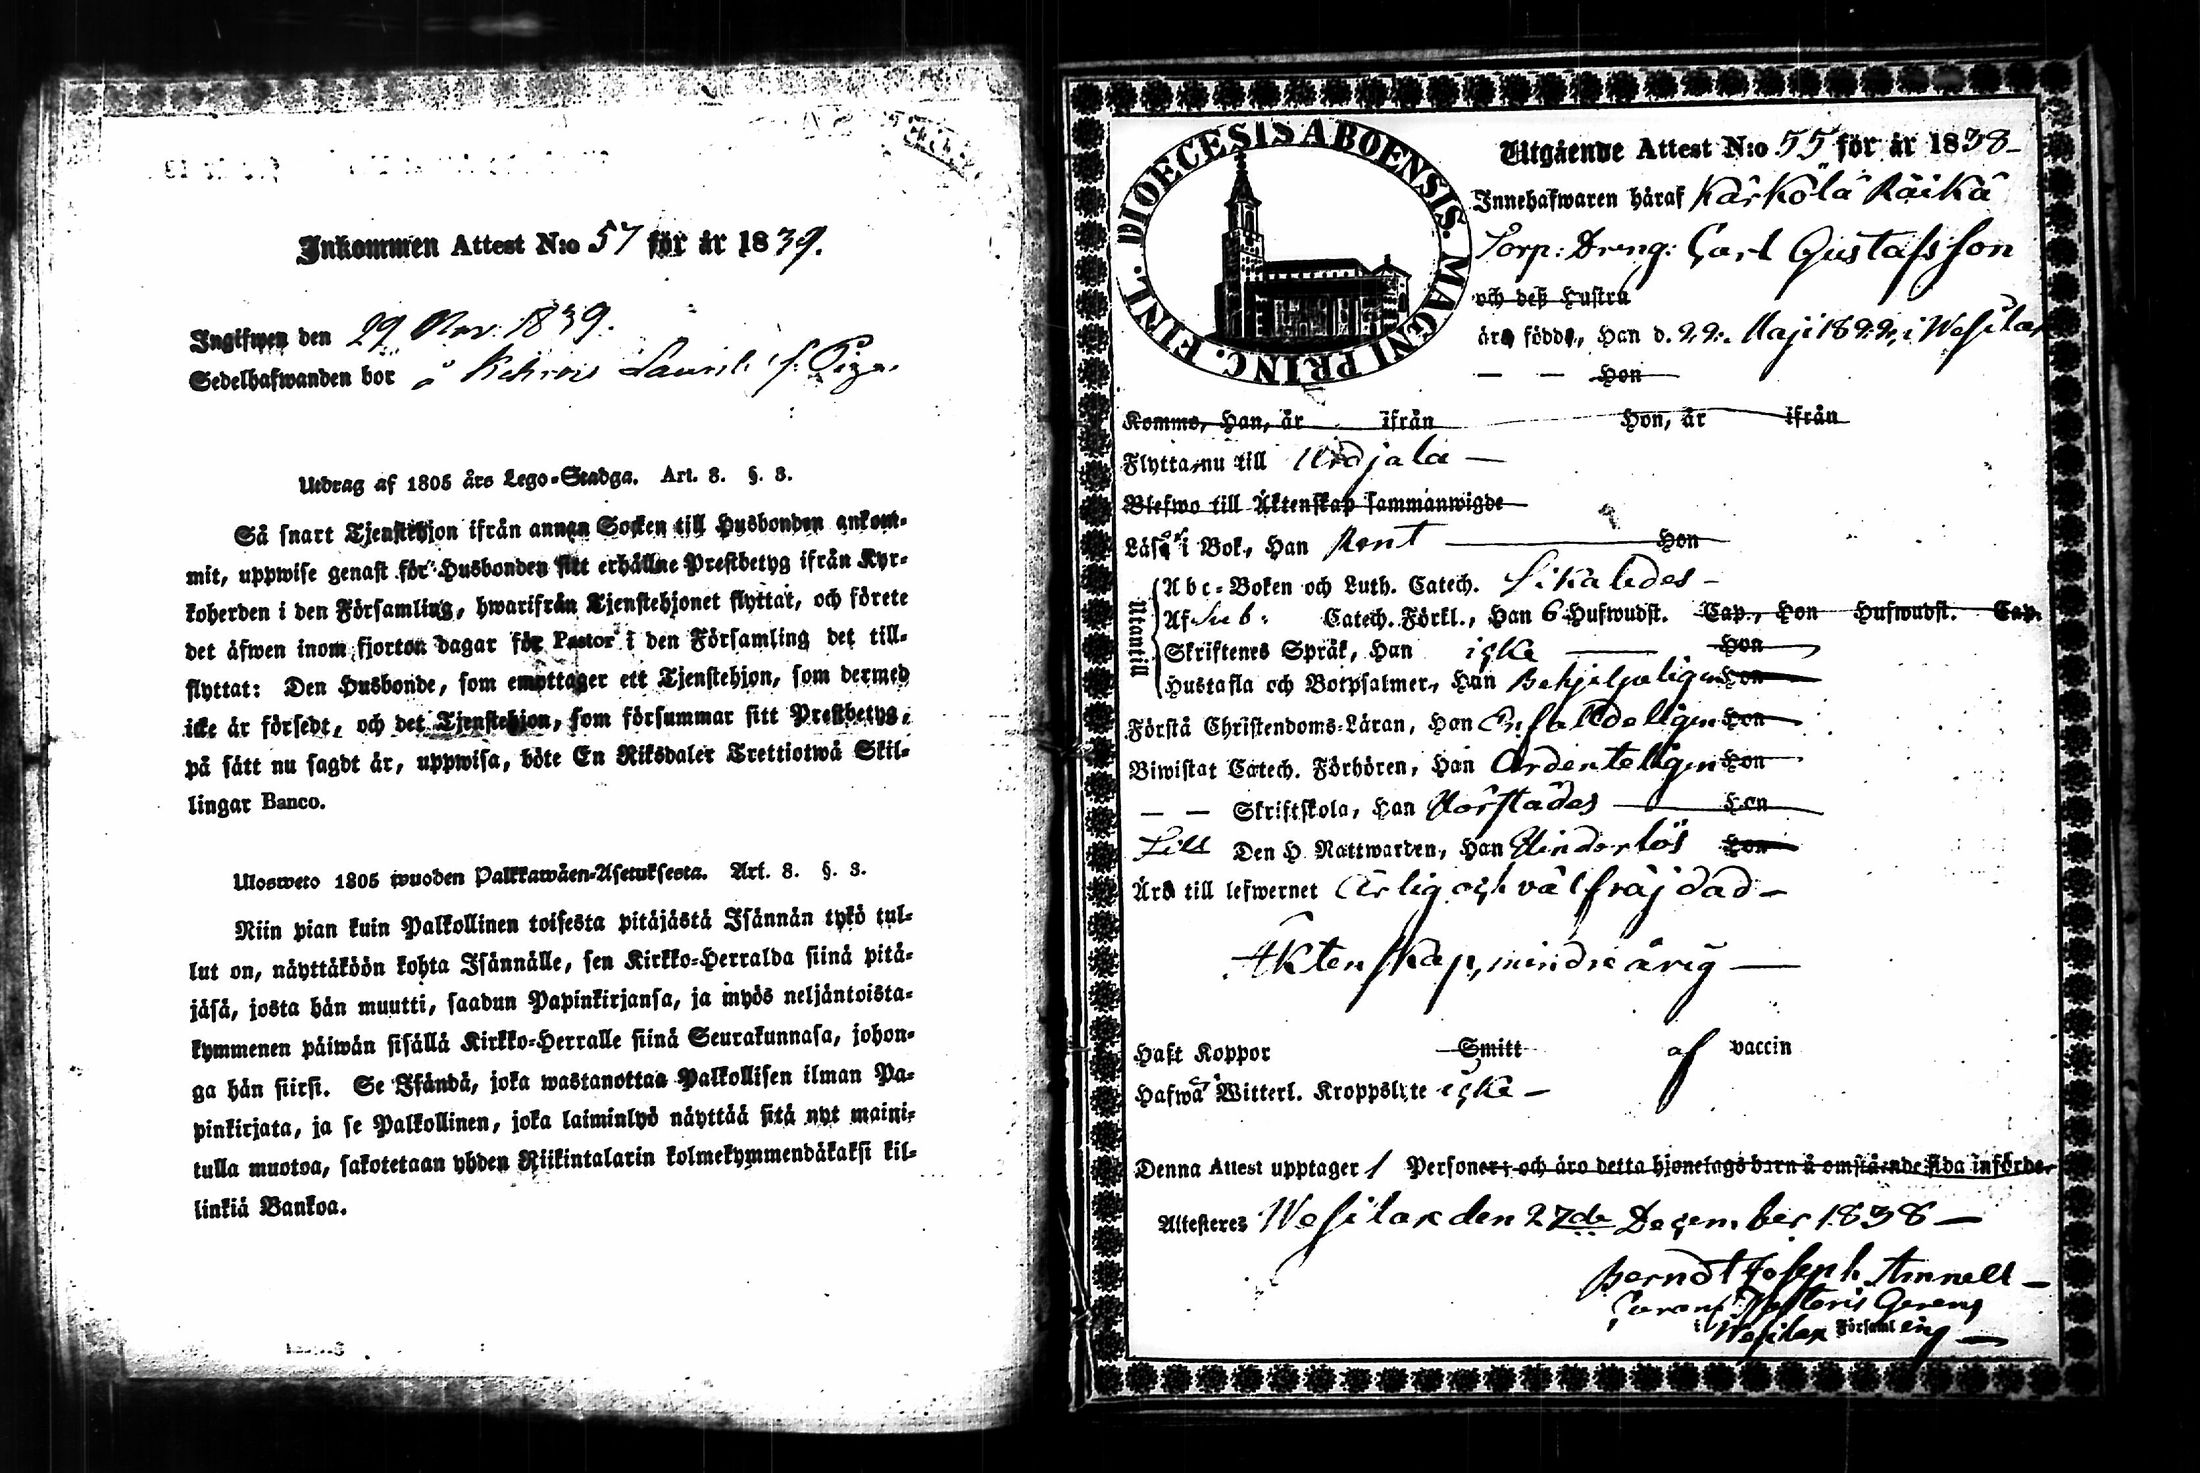 Inkommen Attest N:o 57 för år 1839.
Ingifwen den 29 Nov. 1839.
Sedelhafwanden bor å
Utdrag af 1805 års Lego-Stadga. Art. 8. §. 3.
Så snart Tjenstehjon ifrån annan Socken till Husbonden ankom-
mit, uppwise genast för Husbonden sitt erhållne Prestbetyg ifrån Kyr-
koherden i den Församling, hwarifrån Tjenstehjonet flyttat, och förete
det äfwen inom fjorton dagar för Pastor i den Församling det till-
flyttat: Den Husbonde, som emottager ett Tjenstehjon, som dermed
icke är försedt, och det Tjenstehjon, som försummar sitt Prestbetyg,
på sätt nu sagdt är, uppwisa, böte En Riksdaler Trettiotwå Skil-
lingar Banco.
Ulosweto 1805 wuoden Palkkawäen-Asetuksesta. Art. 8. §. 3.
Niin pian kuin Palkollinen toisesta pitäjästä Isännän tykö tul-
lut on, näyttäköön kohta Isännälle, sen Kirkko-Herralda siinä pitä-
jäsä, josta hän muutti, saadun Papinkirjansa, ja myös neljäntoista-
kymmenen päiwän sisällä Kirkko-Herralle siinä Seurakunnasa, johon-
ga hän siirsi. Se Isändä, joka wastanottaa Palkollisen ilman Pa-
pinkirjata, ja se Palkollinen, joka laiminlyö näyttää sitä nyt maini-
tulla muotoa, sakotetaan yhden Riikintalarin kolmekymmendäkaksi kil-
linkiä Bankoa.
DIOECESIS ABOENSIS. MAGNI PRINC. FINL.
Utgående Attest N:o 55 för år 1838
Innehafwaren häraf Kärkölä Räikä
Torp: Dreng: Carl Gustafsson
och deß Hustru
äro födde, Han d. 22. Maji 1822, i Wesilax
— — Hon
Komme, Han, år ifrån Hon, år ifrån
Flytta nu till Urdjala —
Blefwo till Äktenskap sammanwigde
Läsa i Bok, Han Rent Hon
Utantill
Abc-Boken och Luth. Catech. Likaledes —
Af Sub: Catech. Förkl., Han 6 Hufwudst. Cap., Hon Hufwudst. Cap.
Skriftenes Språk, Han icke — Hon
Hustafla och Botpsalmer, Han Behjelpeligen Hon
Förstå Christendoms-Läran, Han Enfaldeligen Hon
Biwistat Catech. Förhören, Han Ordenteligen Hon
— — Skriftskola, Han Hon
Till Den H. Nattwarden, Han Hinderlös Hon
Äro till lefwernet Ärlig och välfräjdad —
Äktenskap, minderårig —
Haft Koppor Smitt af vaccin
Hafwa Witterl. Kroppslyte icke —
Denna Attest upptager 1 Personer; och äro detta hjonelags barn å omstående sida införde.
Attesteres Wesilax den 27de December 1838 —
Berndt Joseph Amnell —
i Wesilax Församling —